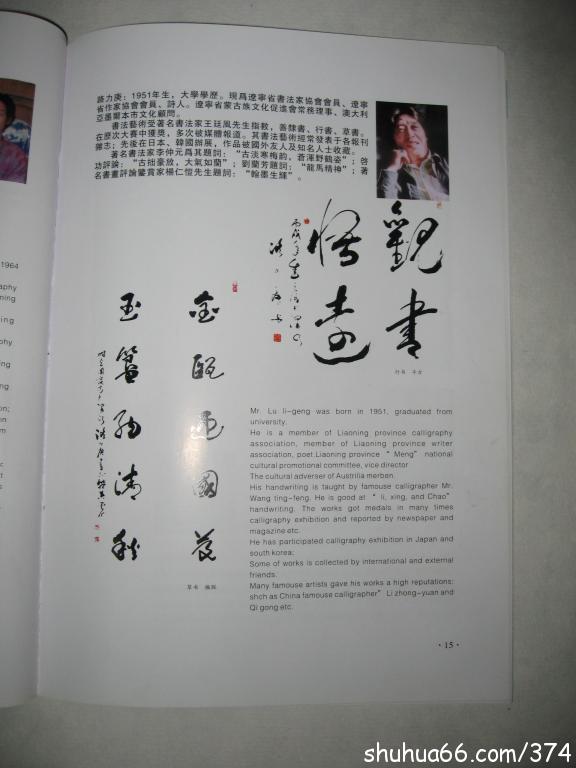 1964
路力庚：1951年生，大學學歷。現爲遼寧省書法家協會會員、遼寧
省作家協會會員、詩人。遼寧省蒙古族文化促進會常務理事、澳大利
亞墨爾本市文化顧問。
書法藝術受著名書法家王廷風先生指教，善隸書、行書、草書。
在歷次大賽中獲獎，多次被媒體報道。其書法藝術經常發表于各報刊
雜志；先後在日本、韓國辦展，作品被國外友人及知名人士收藏。
著名書法家李仲元爲其題詞：“古淡寒梅韵，蒼渾野鶴姿”；啓
功評論：“古拙豪放，大氣如蘭”；劉蘭芳題詞：“龍馬精神”；著
名書畫評論鑒賞家楊仁愷先生題詞：“翰墨生輝”。
觀書
悟道
行書 平方
金甌
國
玉
清秋
草書
Mr. Lu li-geng was born in 1951, graduated from
university.
He is a member of Liaoning province calligraphy
association, member of Liaoning province writer
association, poet.Liaoning province “ Meng” national
cultural promotional committee, vice director
The cultural adverser of Austrilia merben.
His handwriting is taught by famouse calligrapher Mr.
Wang ting-feng. He is good at “ li, xing, and Chao”
handwriting. The works got medals in many times
calligraphy exhibition and reported by newspaper and
magazine etc.
He has participated calligraphy exhibition in Japan and
south korea;
Some of works is collected by international and external
friends.
Many famouse artists gave his works a high reputations:
shch as China famouse calligrapher” Li zhong-yuan and
Qi gong etc.
·15·
shuhua66.com/374